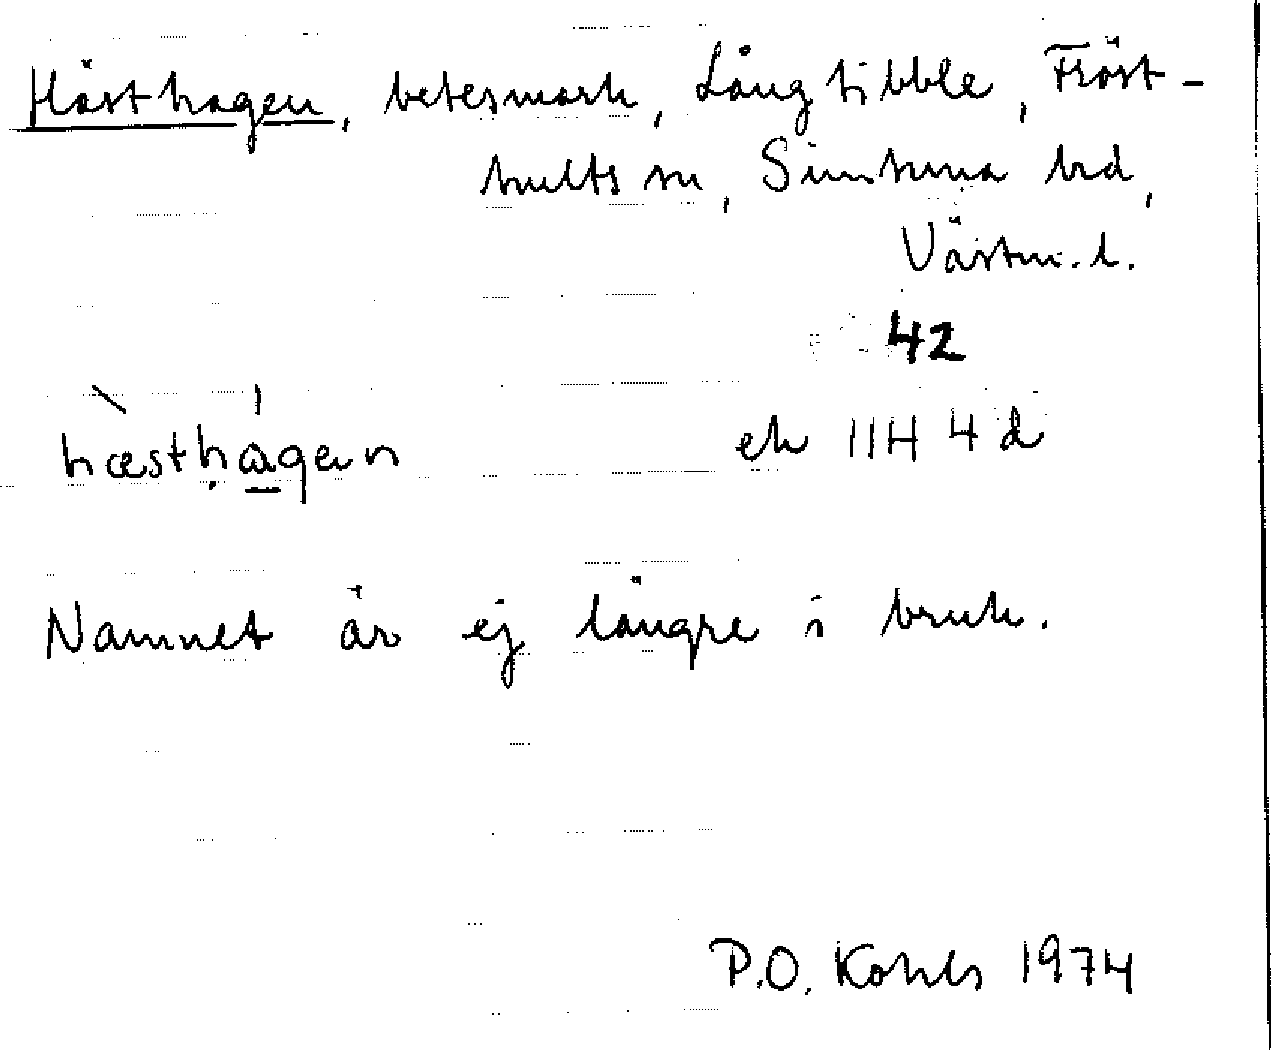 Hästhagen, betesmark, Långtibble, Fröst-
hults sn, Simtuna hd,
Västm. l.
42
hæsthagen ek 11H 4d
Namnet är ej längre i bruk.
P.O. Kohls 1974